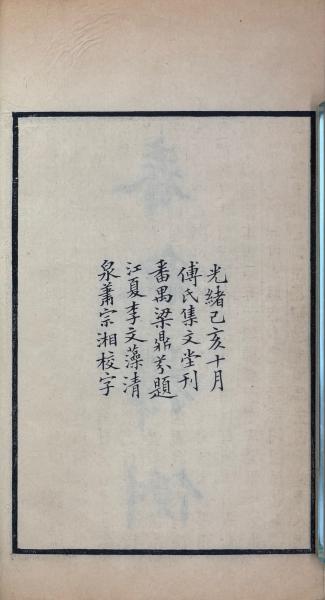 光緒己亥十月
傅氏集文堂刊
番禺梁鼎芬題
江夏李文藻清
泉蕭宗湘校字